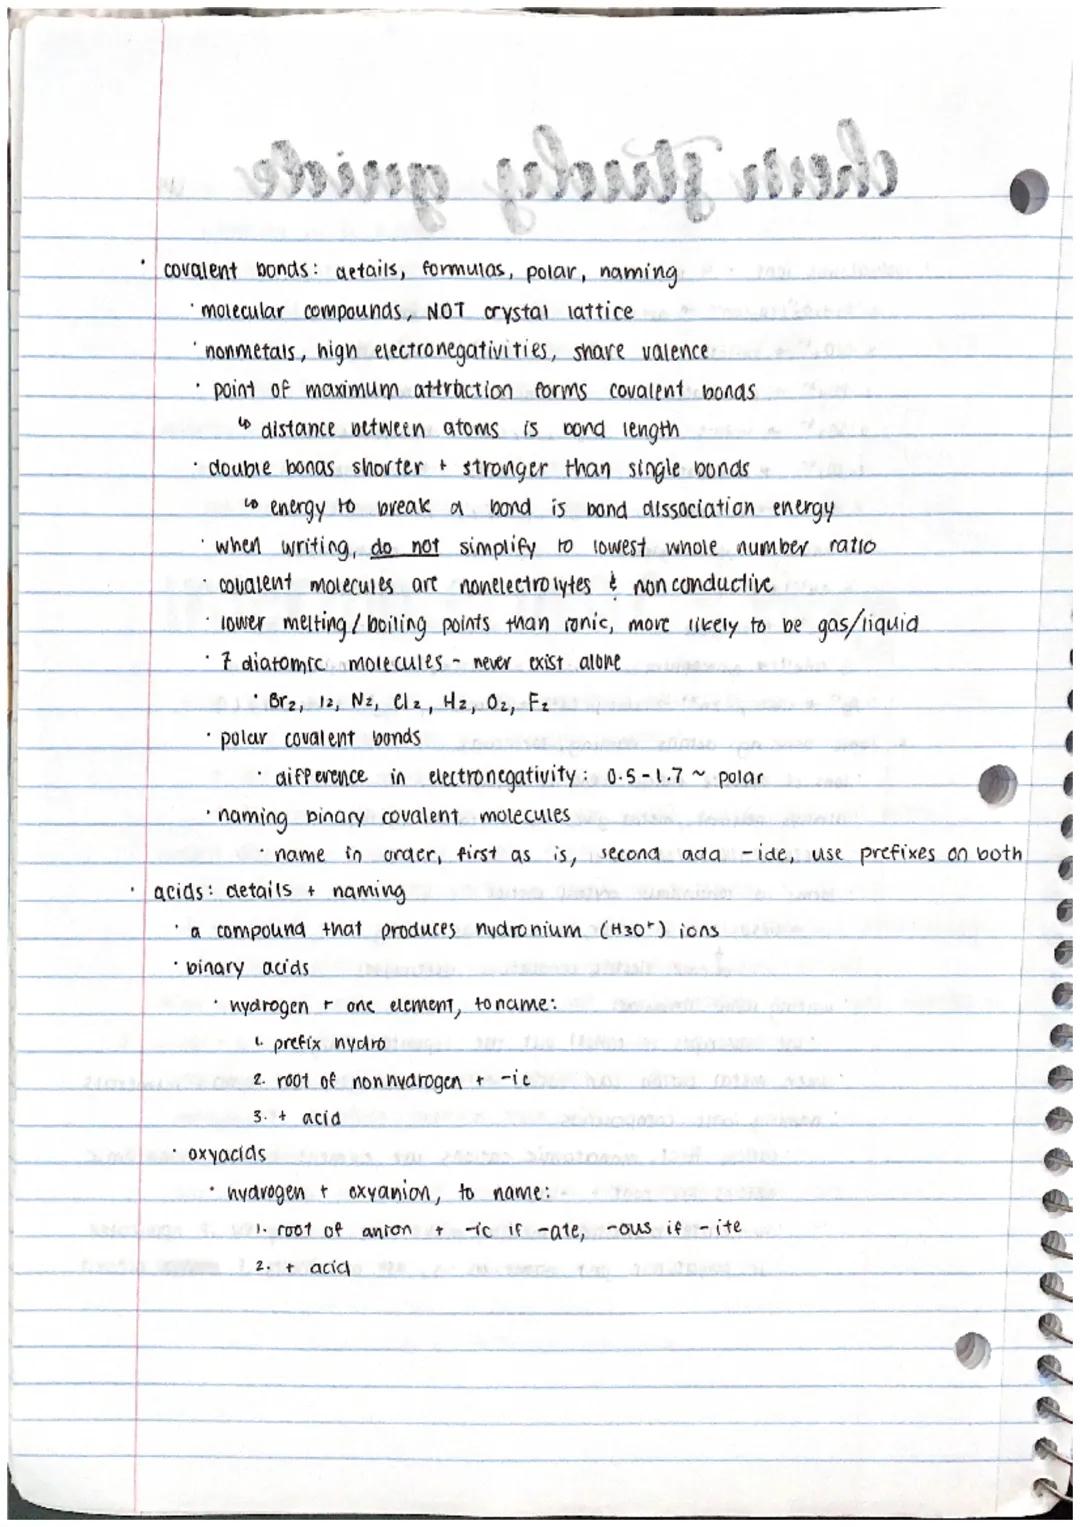 chem study guide
· covalent bonds: details, formulas, polar, naming
· molecular compounds, NOT crystal lattice
· nonmetals, high electronegativities, share valence
· point of maximum attraction forms covalent bonds
↳ distance between atoms is bond length
· double bonds shorter + stronger than single bonds
↳ energy to break a bond is bond dissociation energy
· when writing, do not simplify to lowest whole number ratio
· covalent molecules are nonelectrolytes & nonconductive
· lower melting/boiling points than ionic, more likely to be gas/liquid
· 7 diatomic molecules - never exist alone
· Br2, I2, N2, Cl2, H2, O2, F2
· polar covalent bonds
· difference in electronegativity: 0.5-1.7 ~ polar
· naming binary covalent molecules
· name in order, first as is, second add -ide, use prefixes on both
· acids: details + naming
· a compound that produces hydronium (H3O+) ions
· binary acids
· hydrogen + one element, to name:
1. prefix hydro
2. root of nonhydrogen + -ic
3. + acid
· oxyacids
· hydrogen + oxyanion, to name:
1. root of anion + -ic if -ate, -ous if -ite
2. + acid